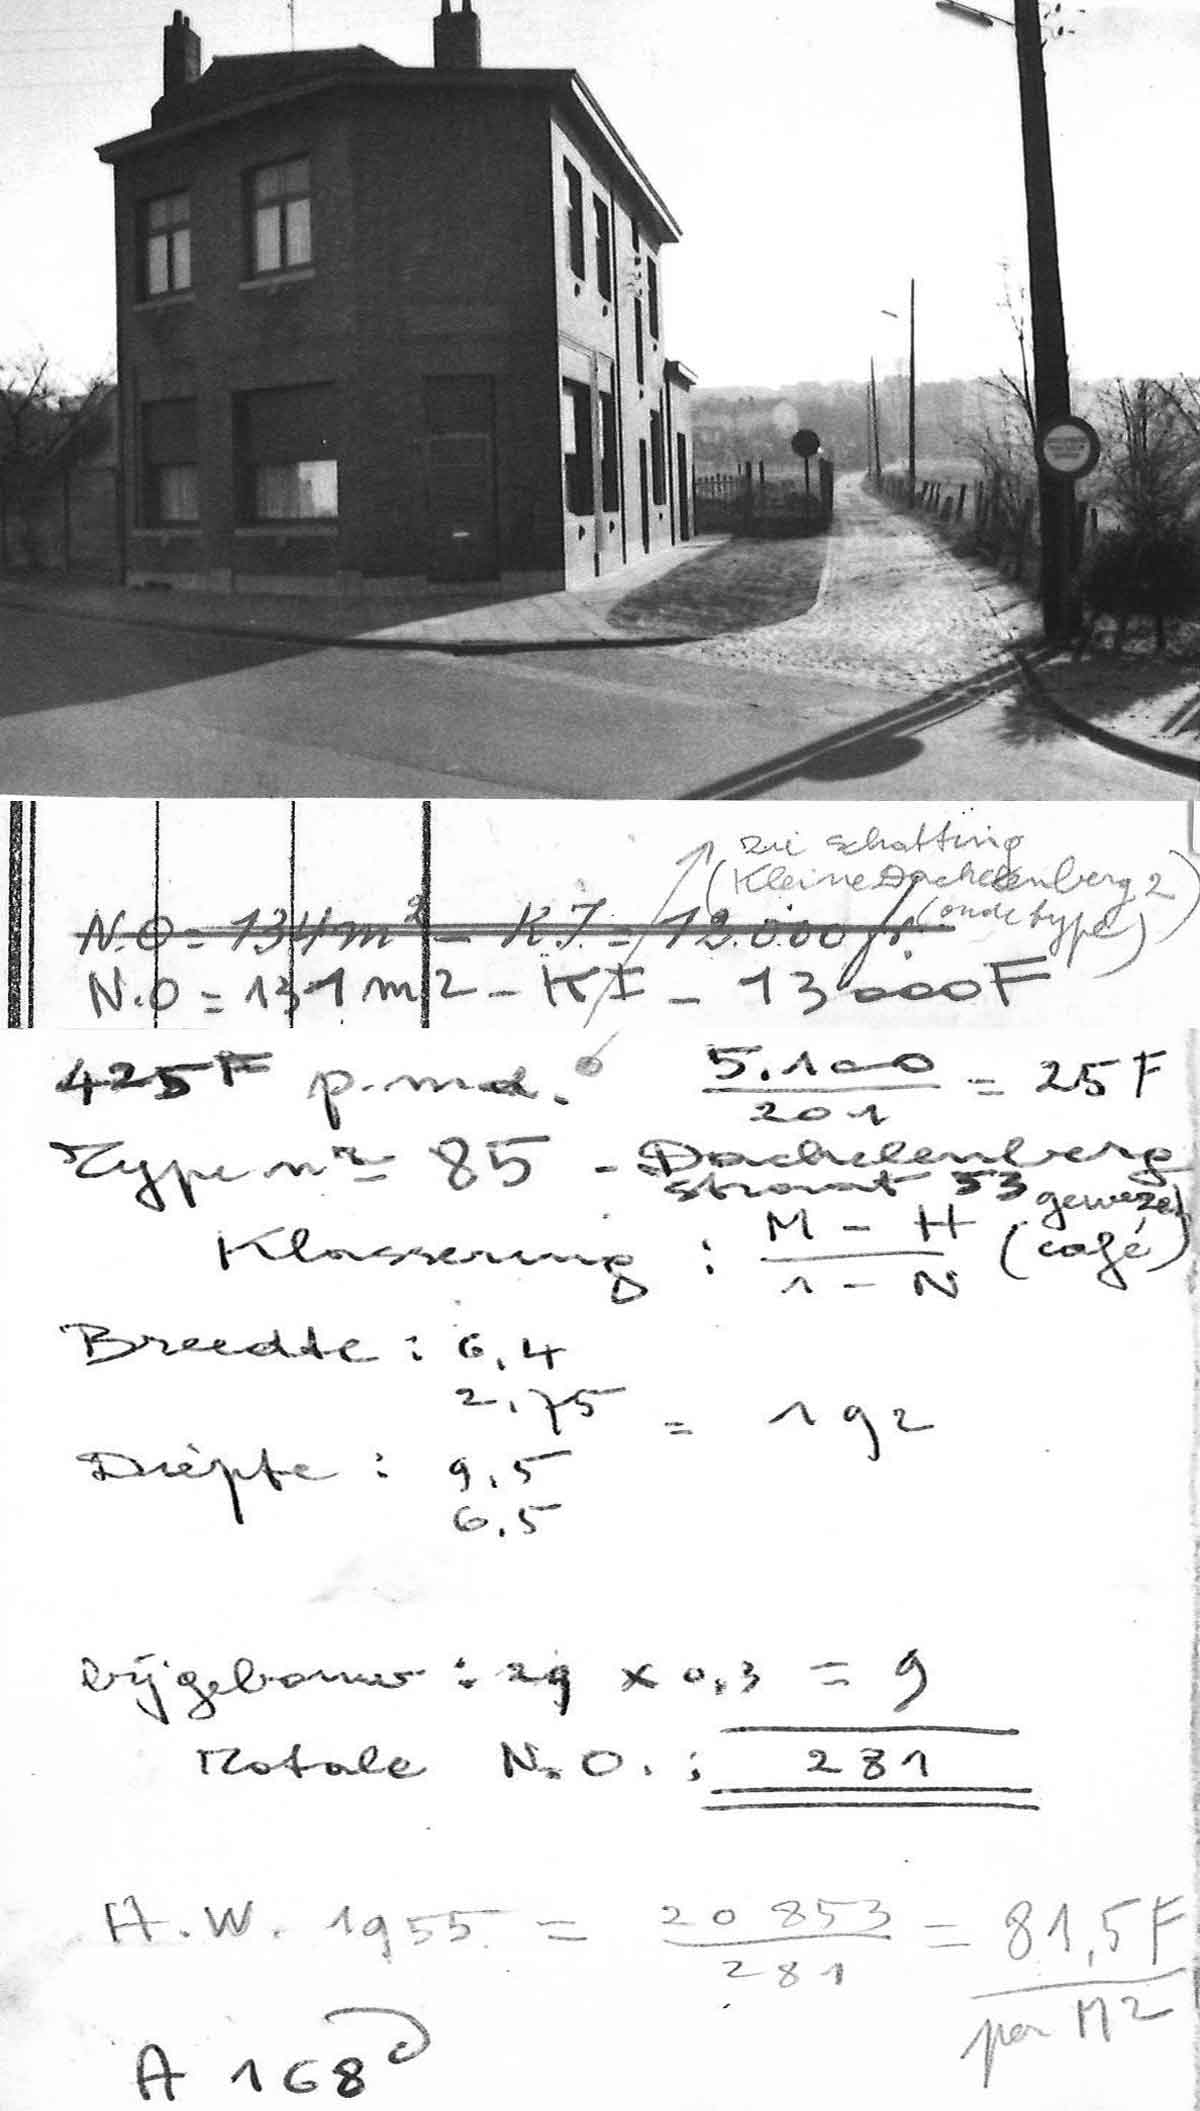 zie schatting
(Kleine Dachelenberg 2
(oude type)
N.O = 134 m² - K.I. = 12.000 fr.
N.O = 131 m2 - KI - 13000F
425F p. md. 5.100 / 201 = 25 F
Type nr 85 - Dachelenberg
straat 53 gewezen
Klassering : M - H / 1 - N (café)
Breedte : 6,4
2,75 = 192
Diepte : 9,5
6,5
bijgebouw : 29 x 0,3 = 9
Totale N.O. : 281
H.W. 1955 = 20 853 / 281 = 81,5F
per M2
A 168